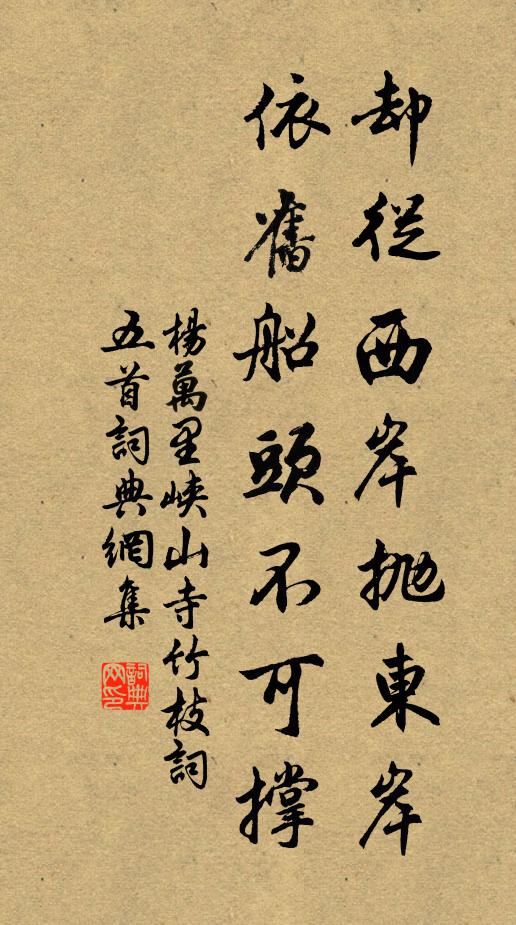 却從西岸拋東岸
依舊船頭不可撐
楊萬里峽山寺竹枝詞
五首詞典網集
詞典網印